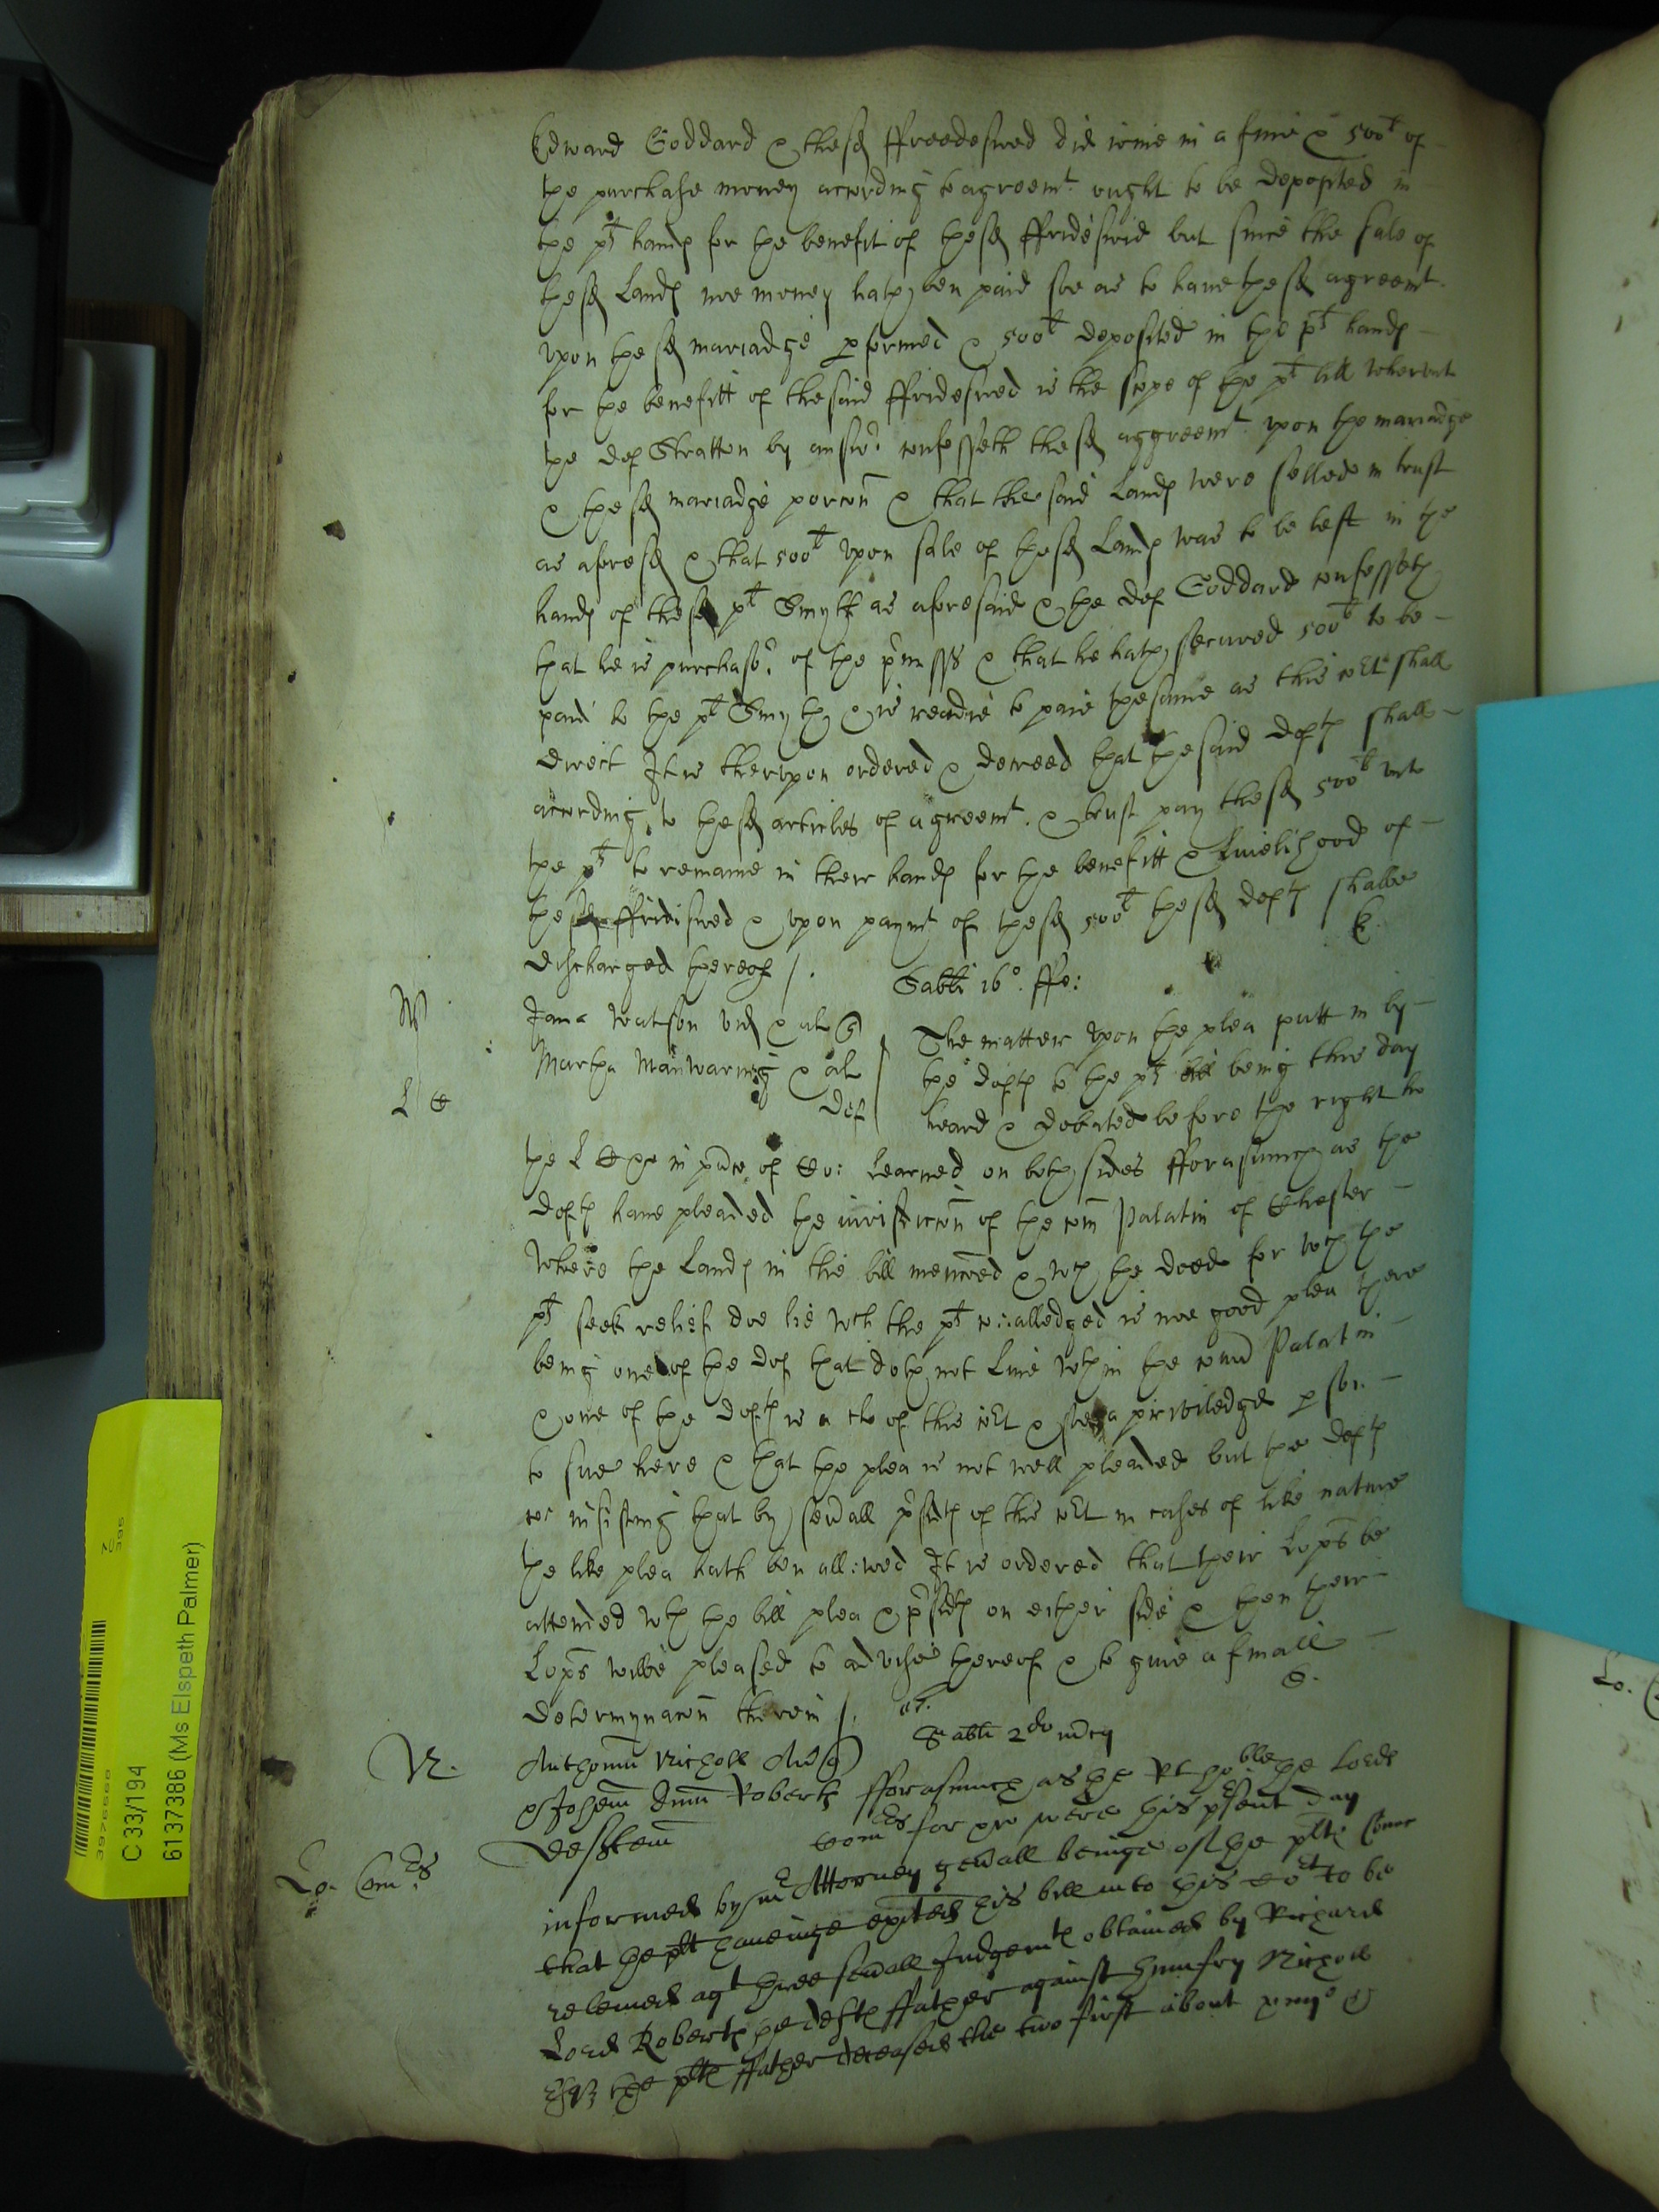 Edward Goddard & thesd ffreedeswed did ioine in a fine & 500l of
the purchase money according to agreemt. ought to be deposited in
the plts hands for the benefit of thesd ffrideswid but since the sale of
thesd Lands noe money hath ben paid soe as to haue thesd agreemt.
vpon thesd mariadge pformed & 500l deposited in the plts hands
for the benefitt of the said ffrideswed is the scope of the plts bill whervnto
the def Stratton by answer confesseth thesd aggreemt vpon the mariadge
& thesd mariadge porcon & that the said Lands were setled in trust
as aforesd & that 500l vpon sale of thesd Lands was to be left in the
hands of thesd plt Smyth as aforesaid & the def Goddard confesseth
that he is purchaser of the pmisss & that he hath secured 500l to be
paid to the plt Smyth & is readie to paie the same as this cort shall
direct It is thervpon ordered & decreed that the said defts shall
according to thesd articles of agreemt. & trust pay thesd 500l vnto
the plts to remaine in their hands for the benefitt & Liuelihood of
thesd ffridiswed & vpon paymt of thesd 500l thesd defts shalbe
discharged thereof /.
Sabti 16o. ffe:
W
Jana Watson vid & al q
Martha Manwaring & al
def
L C
The matter vpon the plea putt in by
the defts to the plts bill being this day
heard & debated before the right ho
the L C in pnce of Co: Learned on both sides fforasmuch as the
defts haue pleaded the iurisdiccon of the com Palatin of Chester
Where the Lands in the bill menconed & wth the deeds for wch the
plts seek relief doe lie wch the plt co: alledged is noe good plea there
being one of the def that doth not Liue wthin the said Palatin
& one of the defts is a clo of this cort & soe a priviledge pson
to sue here & that the plea is not well pleaded but the defts
co: insisting that by seuall psidts of this cort in cases of like nature
the like plea hath ben allowed It is ordered that their Lopps be
attended wth the bill plea & psidts on either side & then their
Lopps wilbe pleased to advise thereof & to giue a finall
determynacon therein /.
Sabti 2do mcij
N.
Anthonius Nicholl Ar q
Johem Dnm Roberts
deftem
Lo. Comrs
fforasmuch as the Rt hoble the Lords
Comrs for &c were this psent day
informed by mr Attorney genall beinge of the plts Counc
that the plt haueinge exhited his bill into this cort to be
releiued agt three seuall Judgemts obtained by Richard
Lord Roberts the defts ffather against Humfry Nicholl
Esqr the plts ffather deceased the two first about
C 33/194
61137386 (Ms Elspeth Palmer)